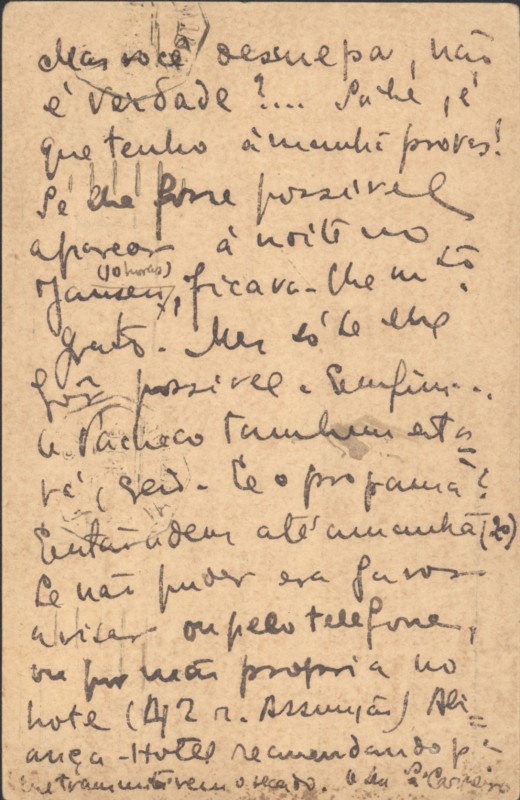 Mas você desculpa, não
é verdade?.... Sabe, é
que tenho àmanhã provas!
Se lhe fosse possivel
aparecer à noite no
(10 horas)
Jansen, ficava-lhe mto.
grato. Mas só se lhe
fôr possivel. Emfim..
O Pacheco tambem esta=
rá, creio. E o programa?
Então adeus até àmanhã (20)
Se não puder era favor
avisar ou pelo telefone,
ou por mão propria no
hotel (42 r. Assunção) Ali=
ança-Hotel recomendando p.a
me transmitirem o recado. O seu Sá-Carneiro